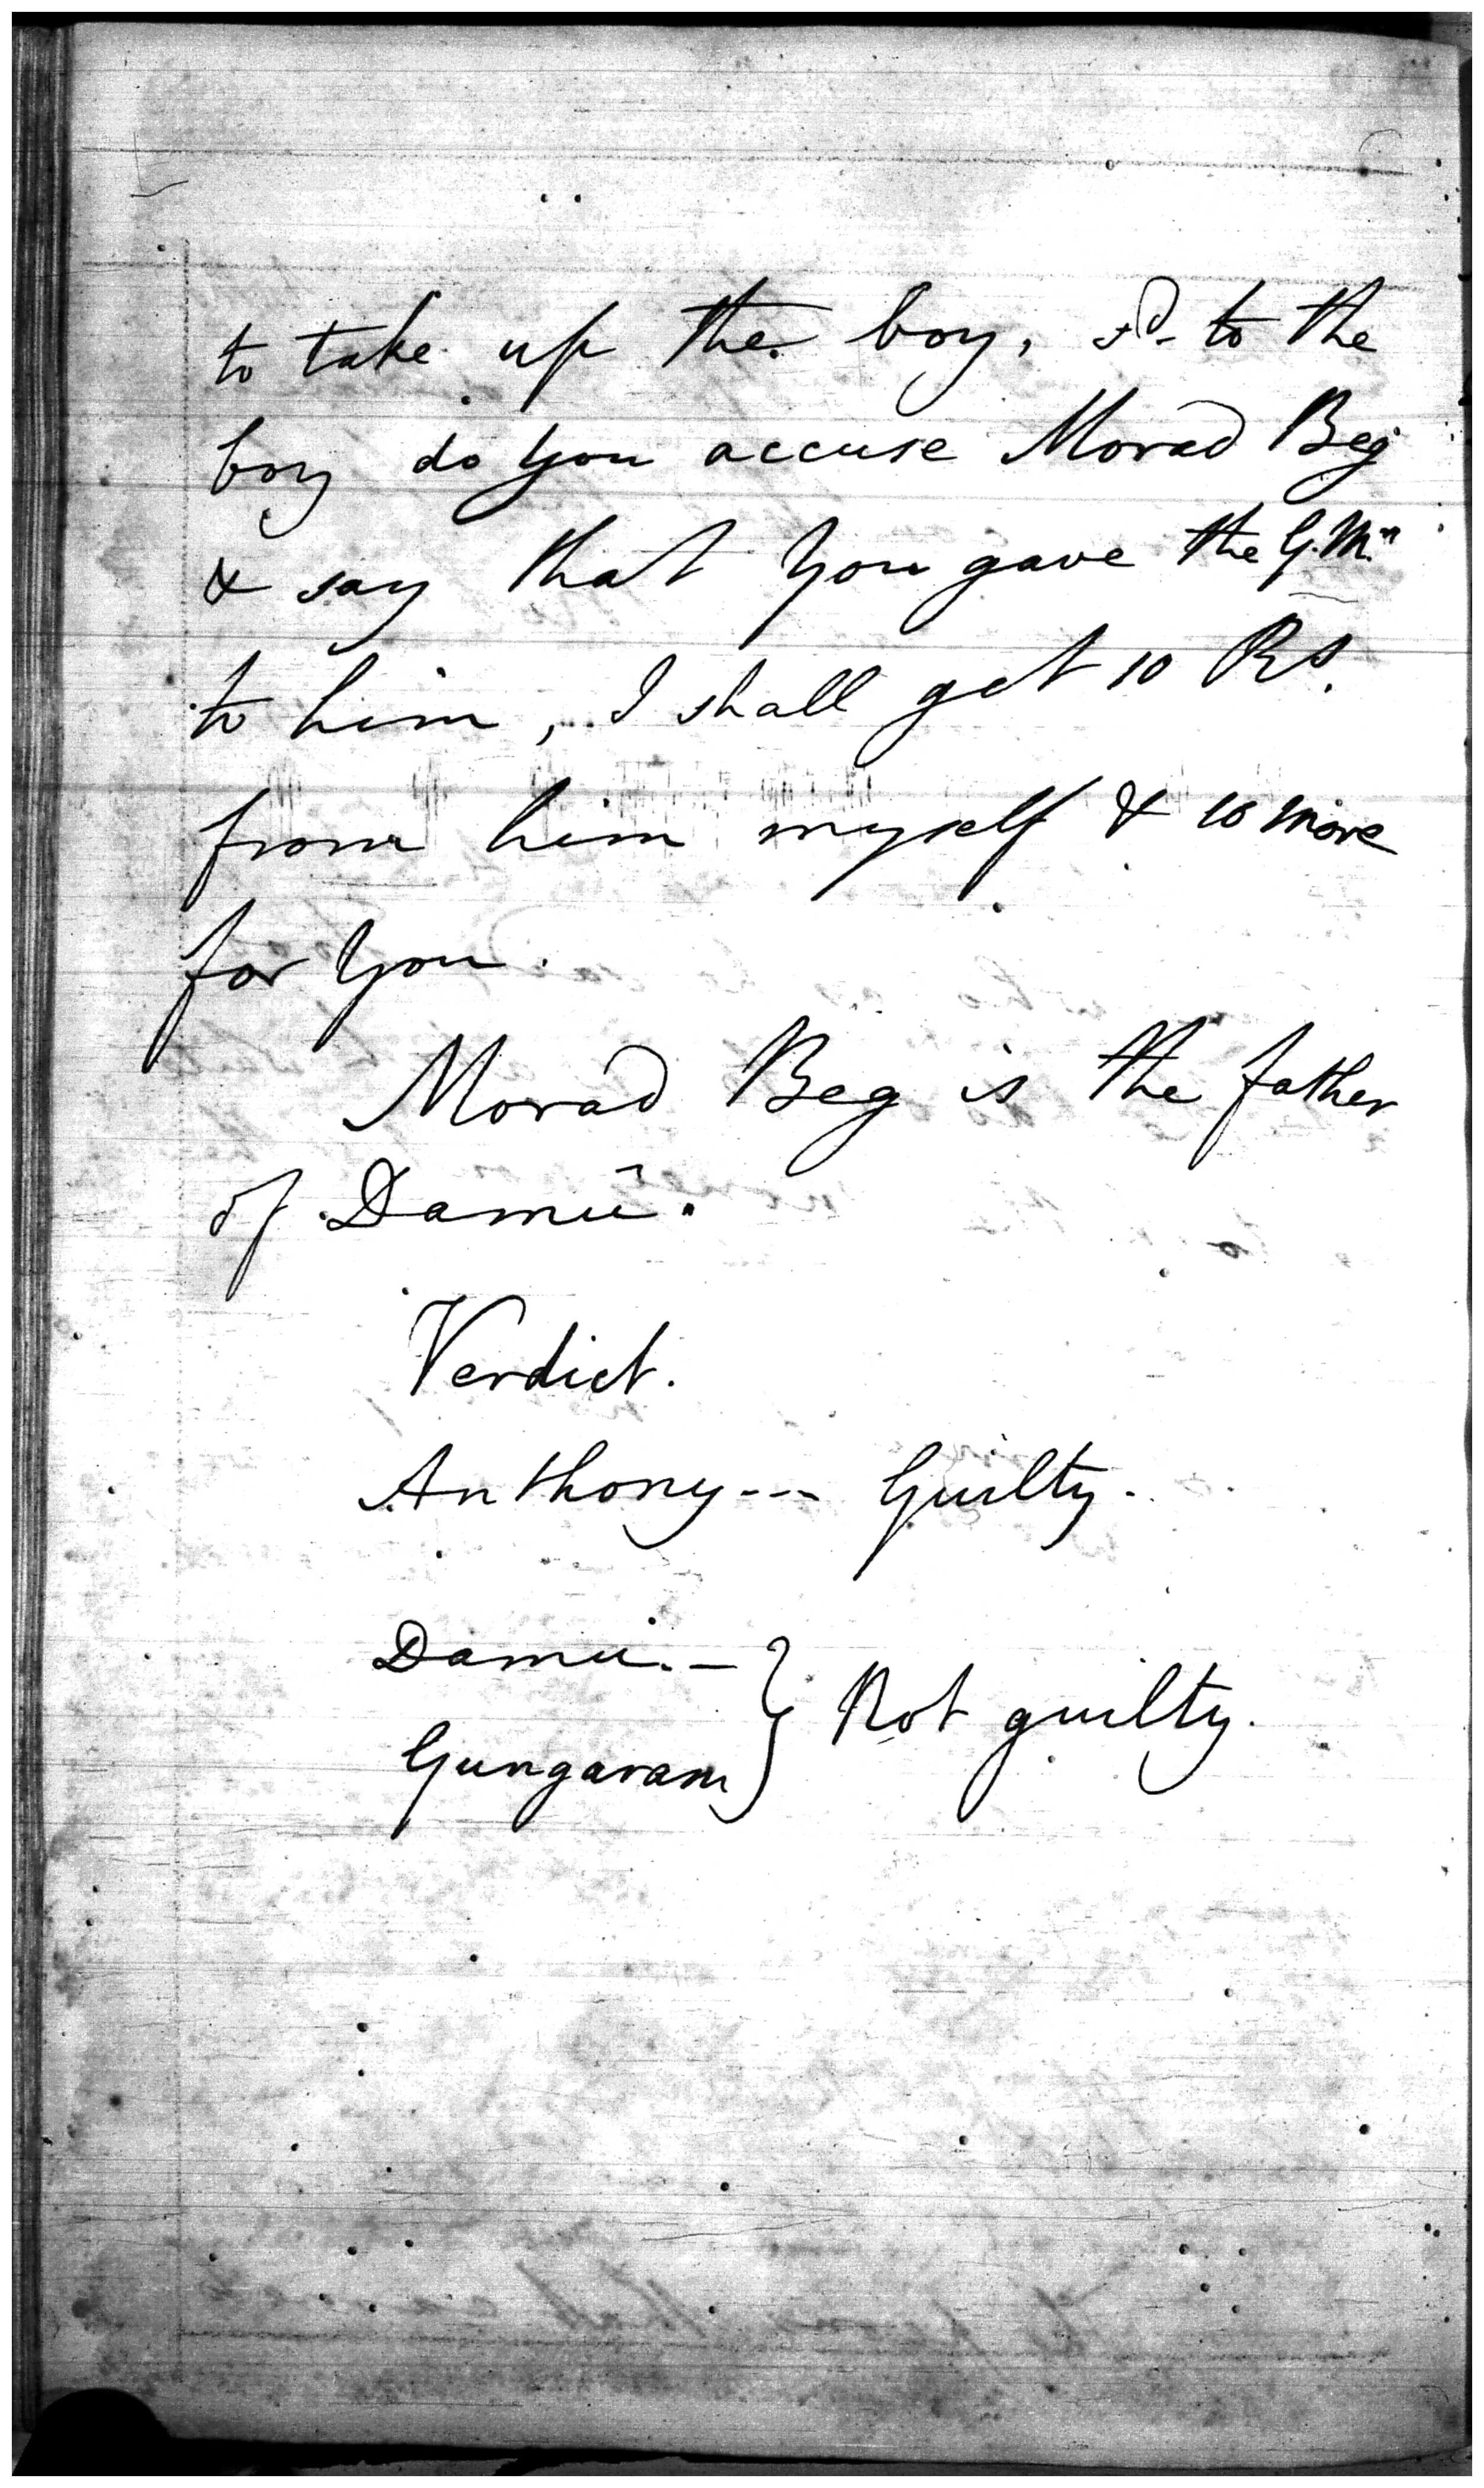 to take up the boy, sd. to the
boy do you accuse Morad Beg
& say that you gave the G.Mrs
to him, I shall get 10 Rs.
from him myself & 10 more
for you.
Morad Beg is the father
of Damu.
Verdict.
Anthony --- Guilty.
Damu. - } Not guilty.
Gungaram